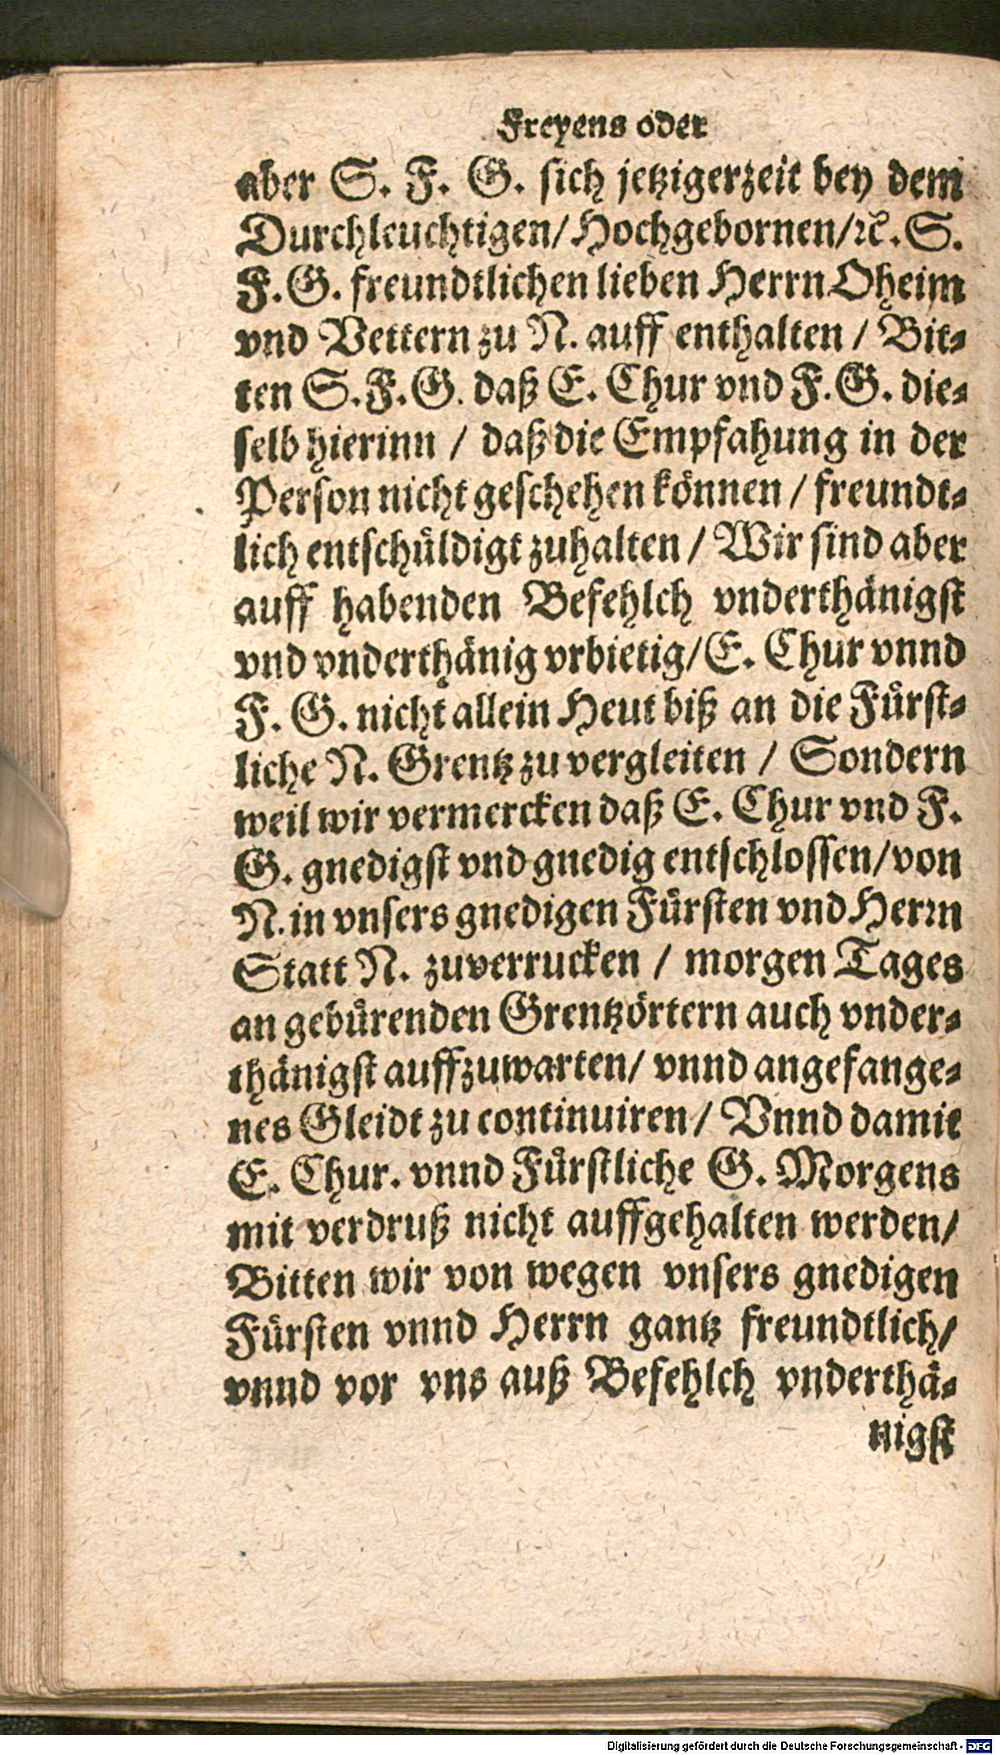 Freyens oder
aber S. F. G. sich jetzigerzeit bey dem
Durchleuchtigen/Hochgebornen/ꝛc̃. S.
F.G. freundtlichen lieben Herrn Oheim
vnd Vettern zu N. auff enthalten / Bit-
ten S.F.G. daß E. Chur vnd F.G. die-
selb hierinn / daß die Empfahung in der
Person nicht geschehen können / freundt-
lich entschüldigt zuhalten / Wir sind aber
auff habenden Befehlch vnderthänigst
vnd vnderthänig vrbietig/E. Chur vnnd
F. G. nicht allein Heut biß an die Fürst-
liche N. Grentz zu vergleiten / Sondern
weil wir vermercken daß E. Chur vnd F.
G. gnedigst vnd gnedig entschlossen/von
N. in vnsers gnedigen Fürsten vnd Herrn
Statt N. zuverrucken / morgen Tages
an gebürenden Grentzörtern auch vnder-
thänigst auffzuwarten/ vnnd angefange-
nes Gleidt zu continuiren/ Vnnd damit
E. Chur. vnnd Fürstliche G. Morgens
mit verdruß nicht auffgehalten werden/
Bitten wir von wegen vnsers gnedigen
Fürsten vnnd Herrn gantz freundtlich/
vnnd vor vns auß Befehlch vnderthä-
nigst
Digitalisierung gefördert durch die Deutsche Forschungsgemeinschaft - DFG